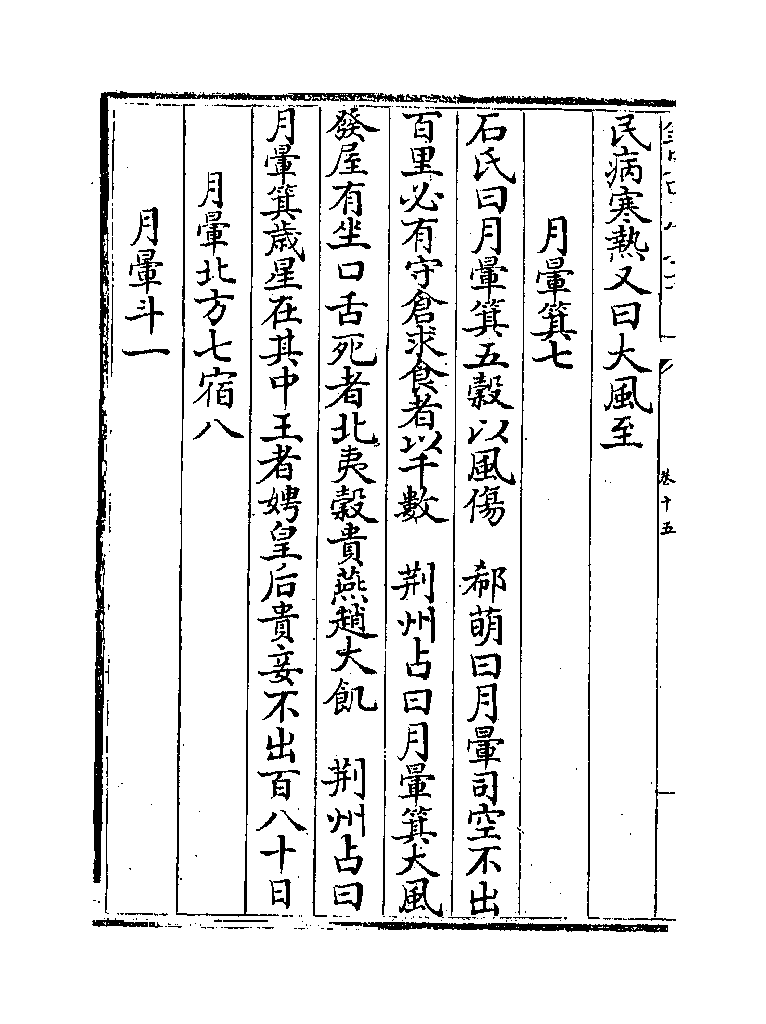 民病寒熱又曰大風至
月暈箕七
石氏曰月暈箕五穀以風傷　郗萌曰月暈司空不出
百里必有守倉求食者以千數　荆州占曰月暈箕大風
發屋有坐口舌死者北夷穀貴燕趙大飢　荆州占曰
月暈箕歲星在其中王者娉皇后貴妾不出百八十日
月暈北方七宿八
月暈斗一
卷十五